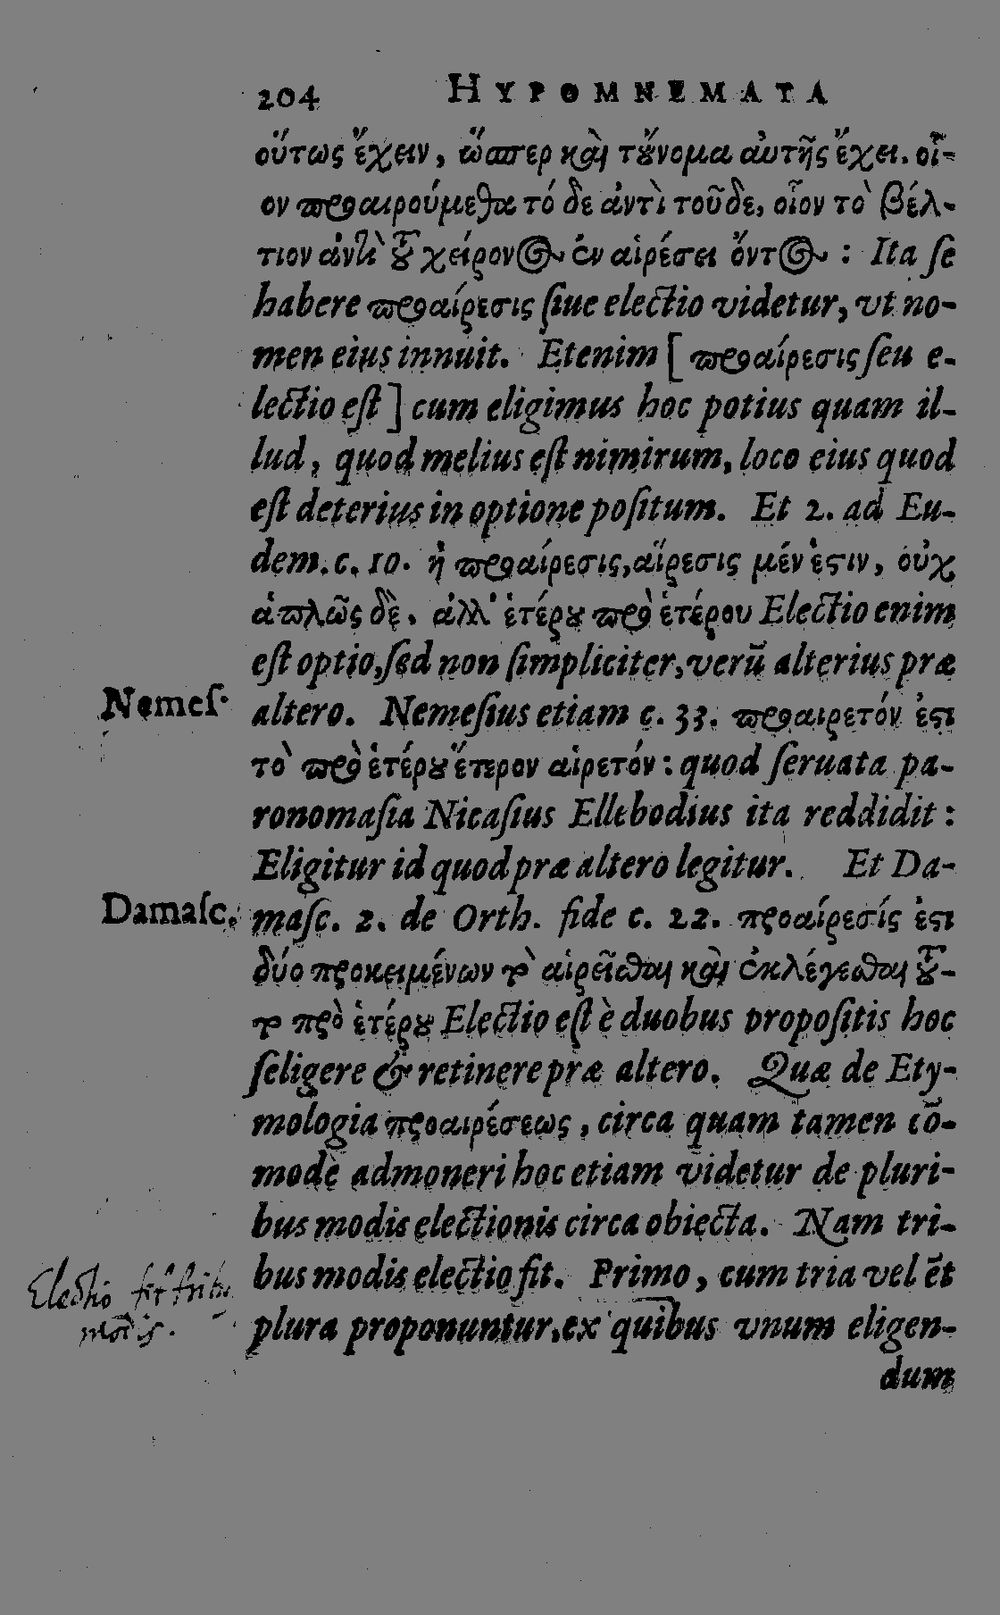 204 HYPOMNEMATA
οὕτως ἔχειν, ὥσπερ καὶ τοὔνομα αὐτῆς ἔχει. οἷ-
ον προαιρούμεθα τόδε ἀντὶ τοῦδε, οἷον τὸ βέλ-
τιον ἀντὶ τοῦ χείρονος ἐν αἱρέσει ὄντος : Ita ſe
habere προαίρεσις ſiue electio videtur, vt no-
men eius innuit. Etenim [ προαίρεσις ſeu e-
lectio eſt ] cum eligimus hoc potius quam il-
lud, quod melius eſt nimirum, loco eius quod
eſt deterius in optione poſitum. Et 2. ad Eu-
dem. c. 10. ἡ προαίρεσις, αἵρεσις μέν ἐστιν, οὐχ
ἁπλῶς δὲ. ἀλλ' ἑτέρου πρὸ ἑτέρου Electio enim
eſt optio, ſed non ſimpliciter, verũ alterius præ
Nemeſ.
altero. Nemeſius etiam c. 33. προαιρετόν ἐστι
τὸ πρὸ ἑτέρου ἕτερον αἱρετόν : quod ſeruata pa-
ronomaſia Nicaſius Ellebodius ita reddidit :
Eligitur id quod præ altero legitur. Et Da-
Damaſc.
maſc. 2. de Orth. fide c. 22. προαίρεσίς ἐστι
δύο προκειμένων τὸ αἱρεῖσθαι καὶ ἐκλέγεσθαι τοῦ-
το πρὸ ἑτέρου Electio eſt è duobus propoſitis hoc
ſeligere & retinere præ altero. Quæ de Ety-
mologia προαιρέσεως, circa quam tamen cõ-
modè admoneri hoc etiam videtur de pluri-
bus modis electionis circa obiecta. Nam tri-
Electio fit tribus
modis.
bus modis electio fit. Primo, cum tria vel ẽt
plura proponuntur, ex quibus vnum eligen-
dum